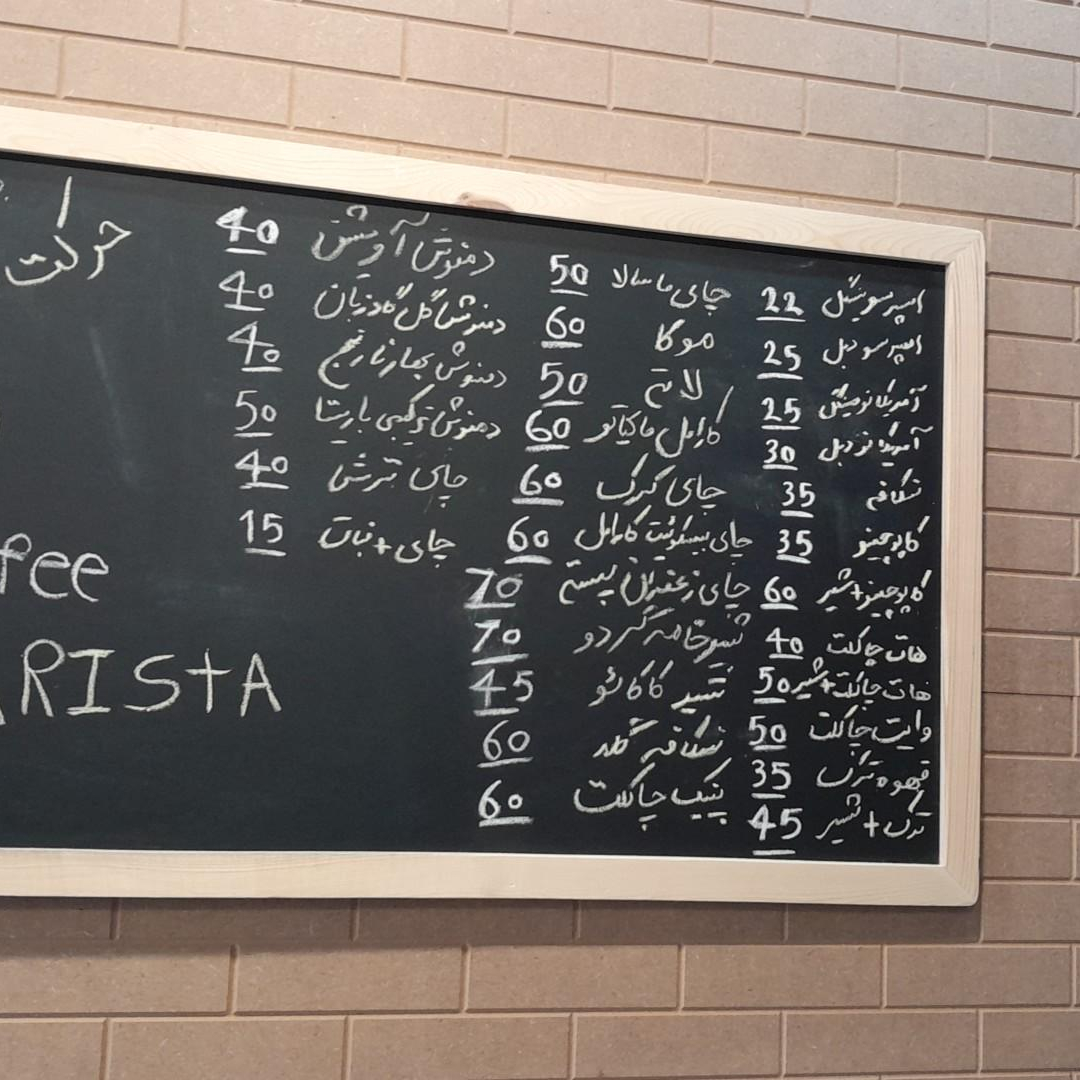 اسپرسو سینگل 22
اسپرسو دبل 25
آمریکانو سینگل 25
آمریکانو دبل 30
نسکافه 35
کاپوچینو 35
کاپوچینو+شیر 60
هات چاکلت 40
هات چاکلت+شیر 50
وایت چاکلت 50
قهوه ترک 35
ترک+شیر 45
چای ماسالا 50
موکا 60
لاته 50
کارامل ماکیاتو 60
چای کرک 60
چای بیسکوئیت کارامل 60
چای زعفران پسته 70
شیر خامه گردو 70
شیر کاکائو 45
نسکافه گلد 60
پینک چاکلت 60
دمنوش آویشن 40
دمنوش گل گاوزبان 40
دمنوش بهار نارنج 40
دمنوش ترکیبی باریستا 50
چای ترش 40
چای+نبات 15
حرکت
fee
RISTA